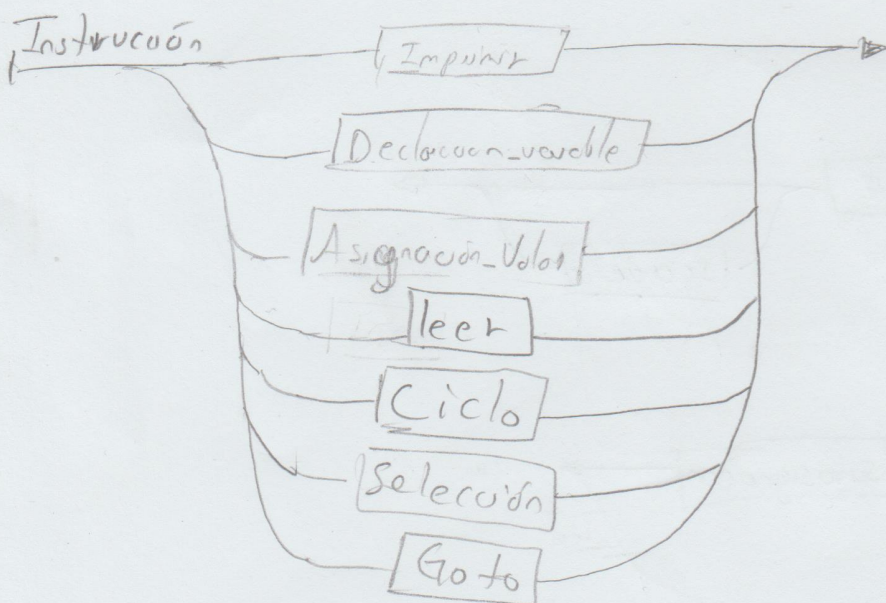 Instrucción
Imprimir
Declaracion_variable
Asignación_Valor
leer
Ciclo
Selección
Goto